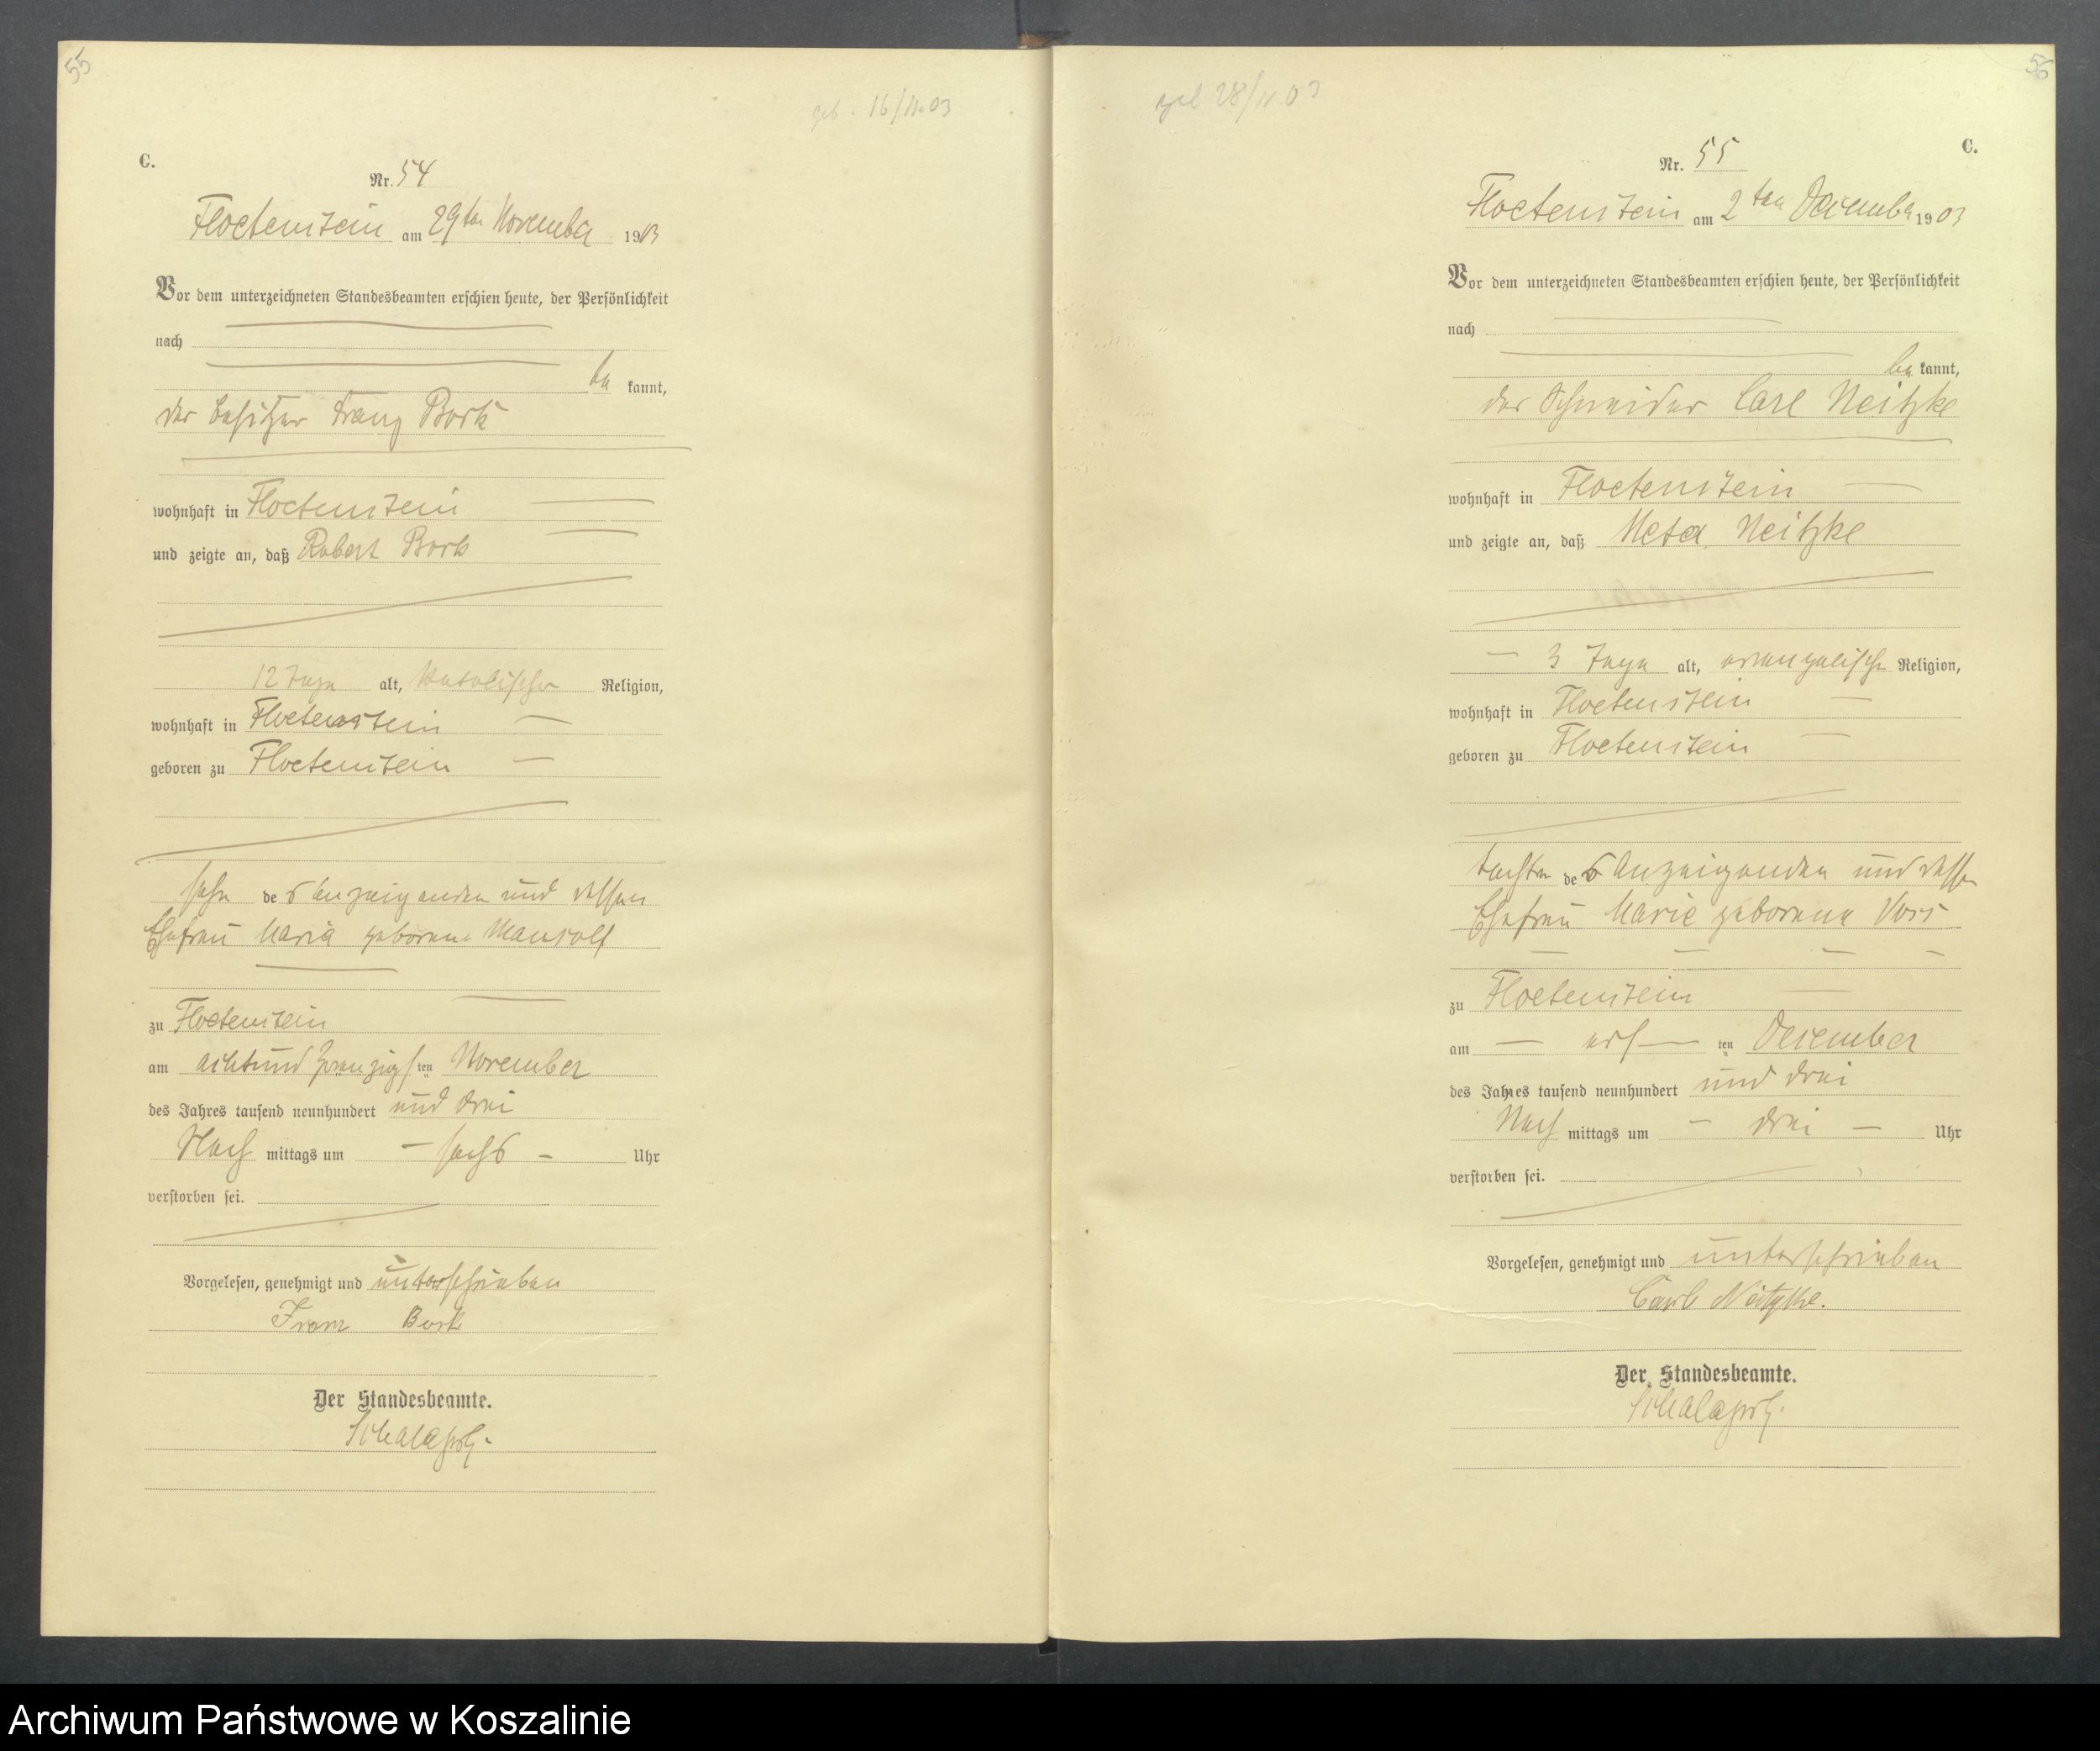 55
geb. 16/11.03
C.
Nr. 54
Floetenstein am 29ten November 1903
Vor dem unterzeichneten Standesbeamten erschien heute, der Persönlichkeit
nach
be kannt,
der Besitzer Franz Bork
wohnhaft in Floetenstein
und zeigte an, daß Robert Bork
12 Tage alt, katolischer Religion,
wohnhaft in Floetenstein
geboren zu Floetenstein
Sohn des Anzeigenden und dessen
Ehefrau Maria geborene
zu Floetenstein
am achtundzwanzigsten November
des Jahres tausend neunhundert und drei
Nach mittags um sechs Uhr
verstorben sei.
Vorgelesen, genehmigt und unterschrieben
Franz Bork
Der Standesbeamte.
56
geb 28/11 03
C.
Nr. 55
Floetenstein am 2ten December 1903
Vor dem unterzeichneten Standesbeamten erschien heute, der Persönlichkeit
nach
be kannt,
der Schneider Carl Neitzke
wohnhaft in Floetenstein
und zeigte an, daß Meta Neitzke
3 Tage alt, evangelischer Religion,
wohnhaft in Floetenstein
geboren zu Floetenstein
Tochter des Anzeigenden und dessen
Ehefrau Marie geborene Voss
zu Floetenstein
am ersten December
des Jahres tausend neunhundert und drei
Nach mittags um drei Uhr
verstorben sei.
Vorgelesen, genehmigt und unterschrieben
Carl Neitzke.
Der Standesbeamte.
Archiwum Państwowe w Koszalinie